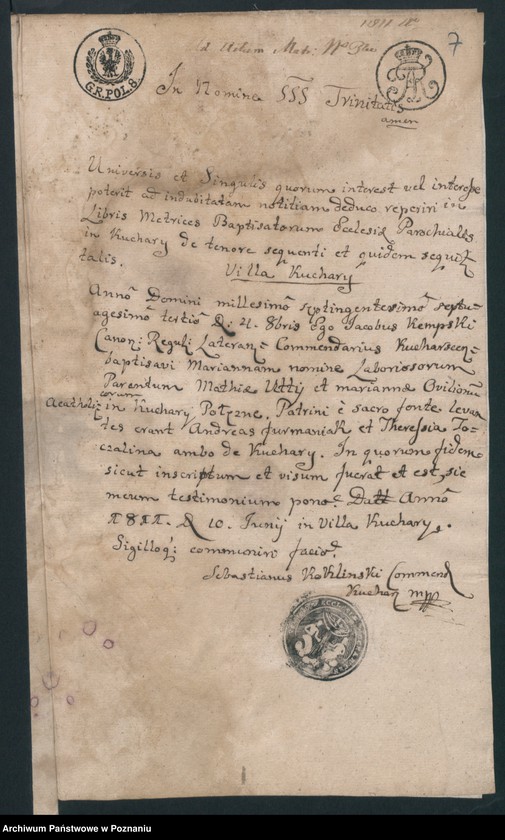 1811 No
7
ad Mair: No
G.R.POL.8.
In Nomine SSS Trinitatis
amen
Universis et Singulis quorum interest vel interesse
poterit ad indubitatam notitiam deduco reperiri in
Libris Metrices Baptisatorum Ecclesiæ Parochialis
in Kuchary de tenore sequenti et quidem sequit
talis.
Villa Kuchary
Anno Domini millesimo septingentesimo septu-
agesimo tertio D: 21. 8bris Ego Jacobus Kempski
Canon: Regul: Lateran= Commendarius Kucharscen=
baptisavi Mariannam nomine Laboriosorum
Parentum Mathiæ Uttij et mariannæ Ovilionu
Acatholi=
corum
in Kuchary Patrini è sacro fonte levan
tes erant Andreas furmaniak et Theressia To-
czalina ambo de Kuchary. In quorum fidem
sicut inscriptum et visum fuerat et est, sic
meum testimonium pono. Datt Anno
1811. D 10. Junij in Villa Kuchary.
Sigilloq; communiri facio.
Sebastianus Koklinski Commend
Kuchar mpp
Archiwum Państwowe w Poznaniu